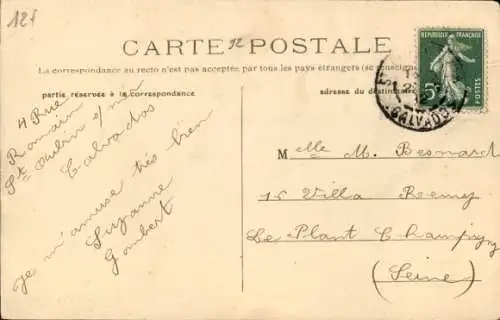 12f
CARTE POSTALE
92
La correspondance au recto n'est pas acceptée par tous les pays étrangers (se renseign
partie réservée à la correspondance
adresse du destinat
REPUBLIQUE FRANÇAISE
5c
POSTES
CALVADOS
4 Rue
Romain
St Aubin s/ mer
Calvados
je m'amuse très bien
Suzanne
Gombert
Melle M. Besnard
15 Villa Remy
Le Plant Champigny
(Seine)